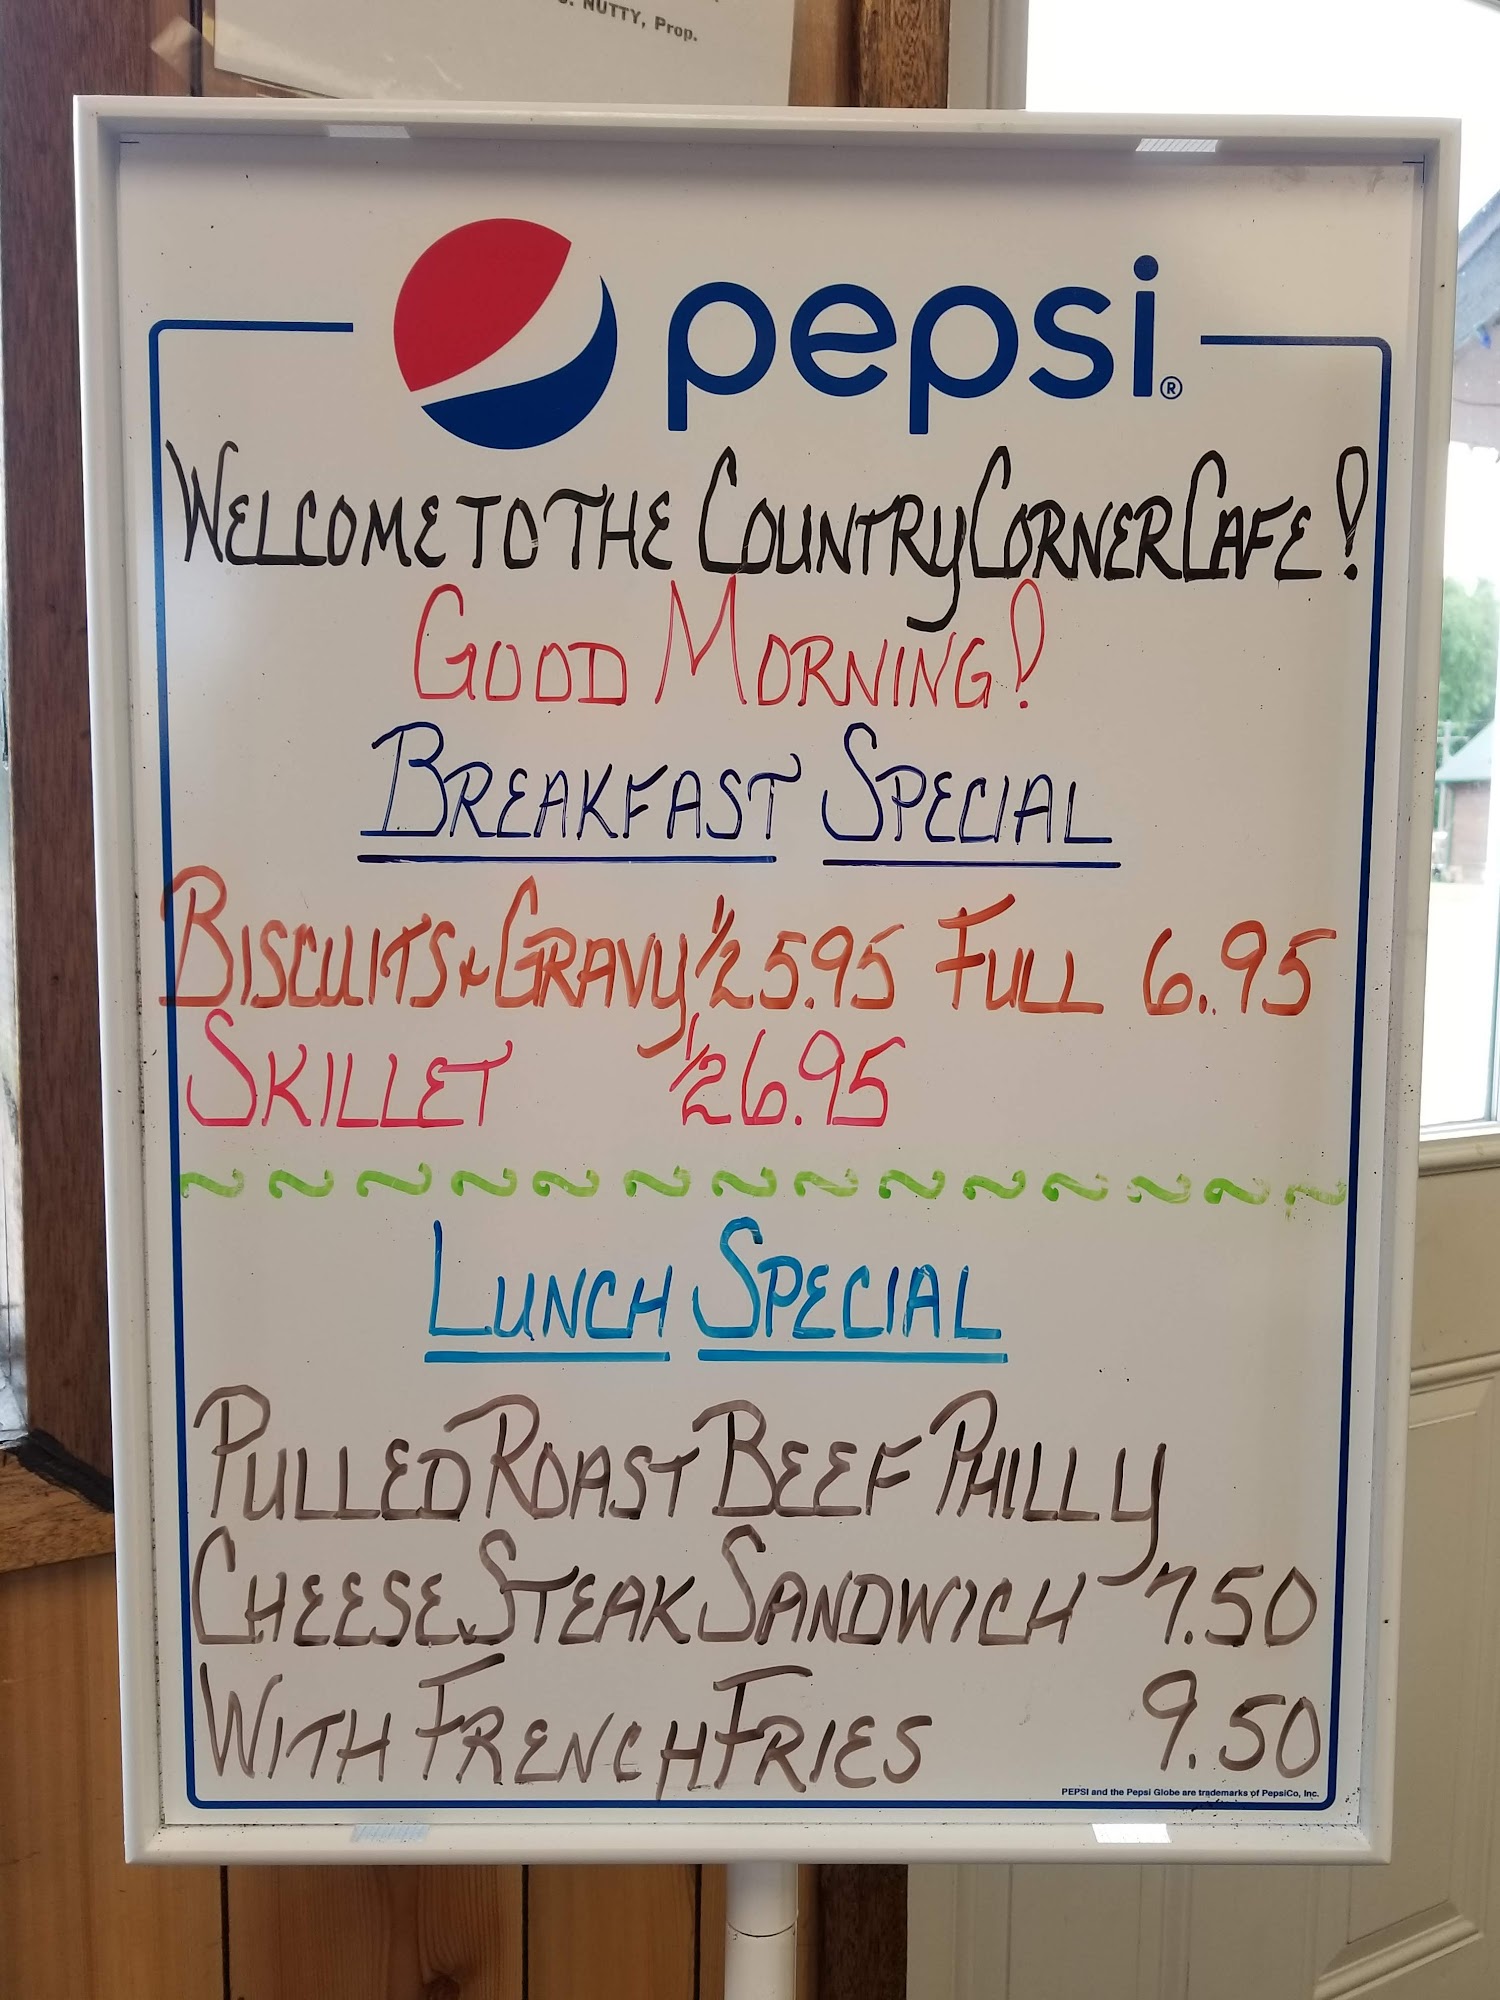 NUTTY, Prop.
pepsi®
WELCOME TO THE COUNTRY CORNER CAFE!
GOOD MORNING!
BREAKFAST SPECIAL
BISCUITS + GRAVY 1/2 5.95 FULL 6.95
SKILLET 1/2 6.95
~ ~ ~ ~ ~ ~ ~ ~ ~ ~ ~ ~ ~ ~
LUNCH SPECIAL
PULLED ROAST BEEF PHILLY
CHEESE STEAK SANDWICH 7.50
WITH FRENCH FRIES 9.50
PEPSI and the Pepsi Globe are trademarks of PepsiCo, Inc.